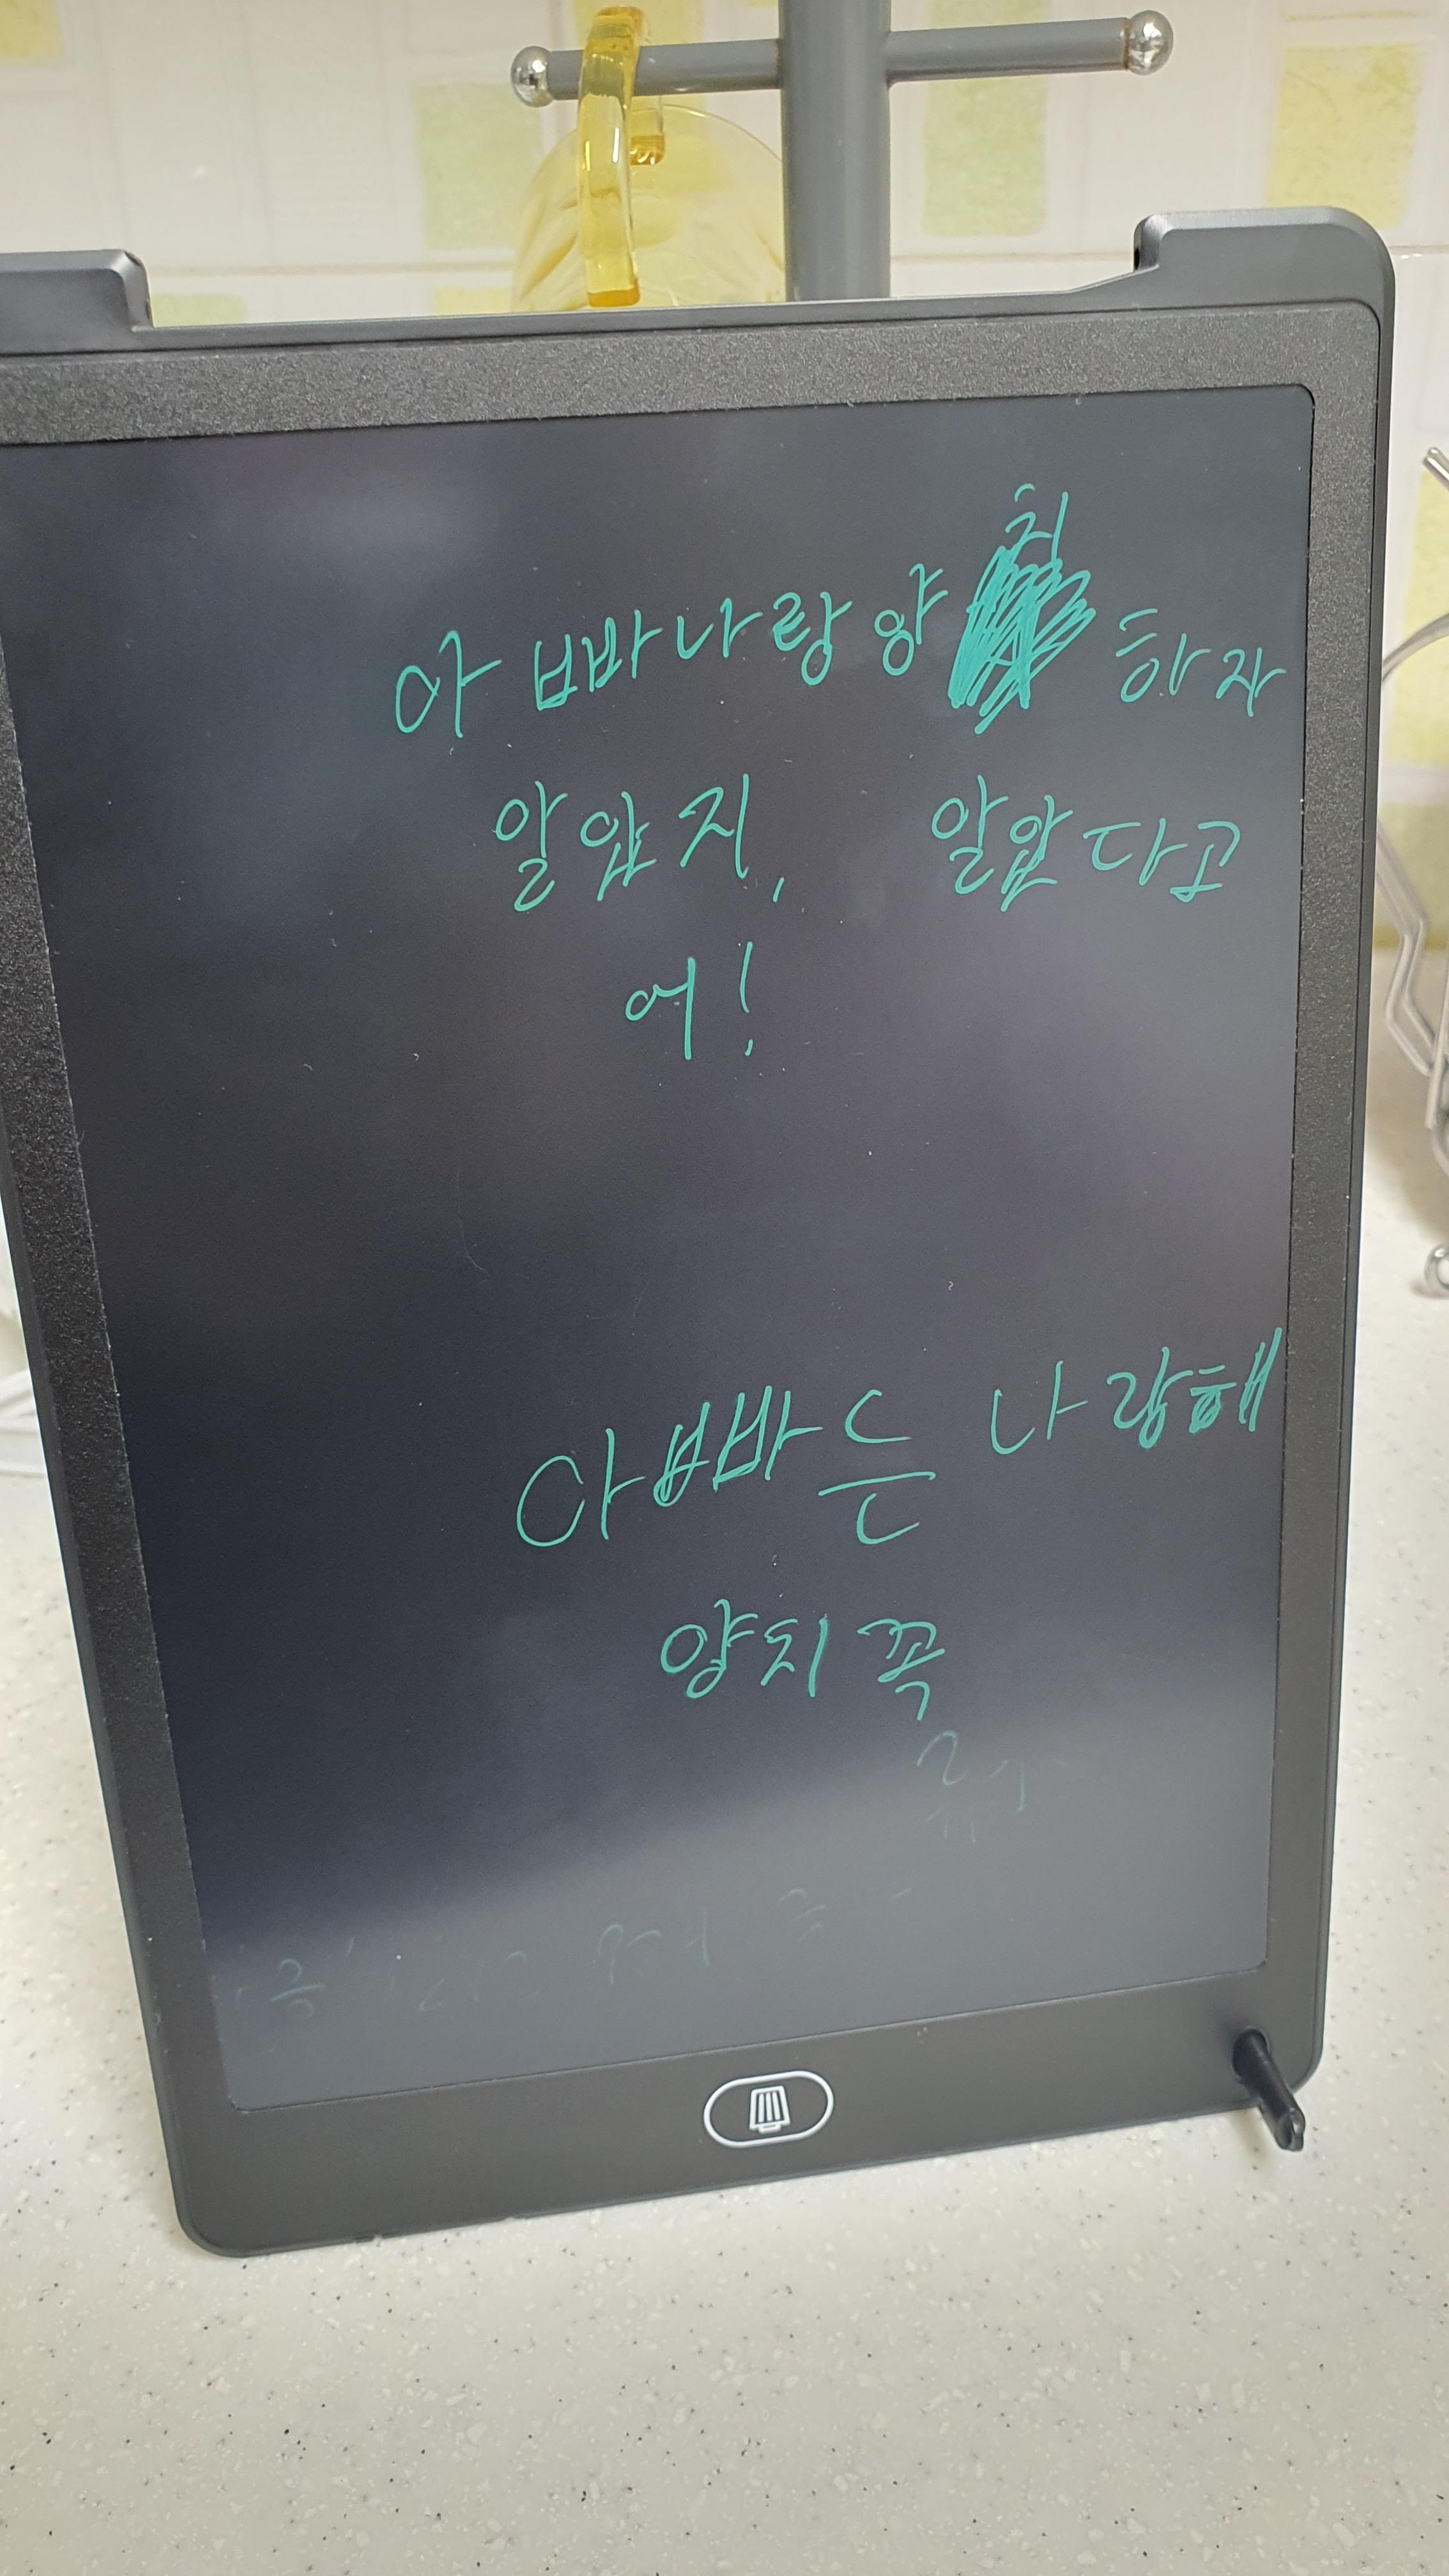 아빠나랑양치하자
알았지, 알았다고
어!
아빠는 나랑해
양치꼭